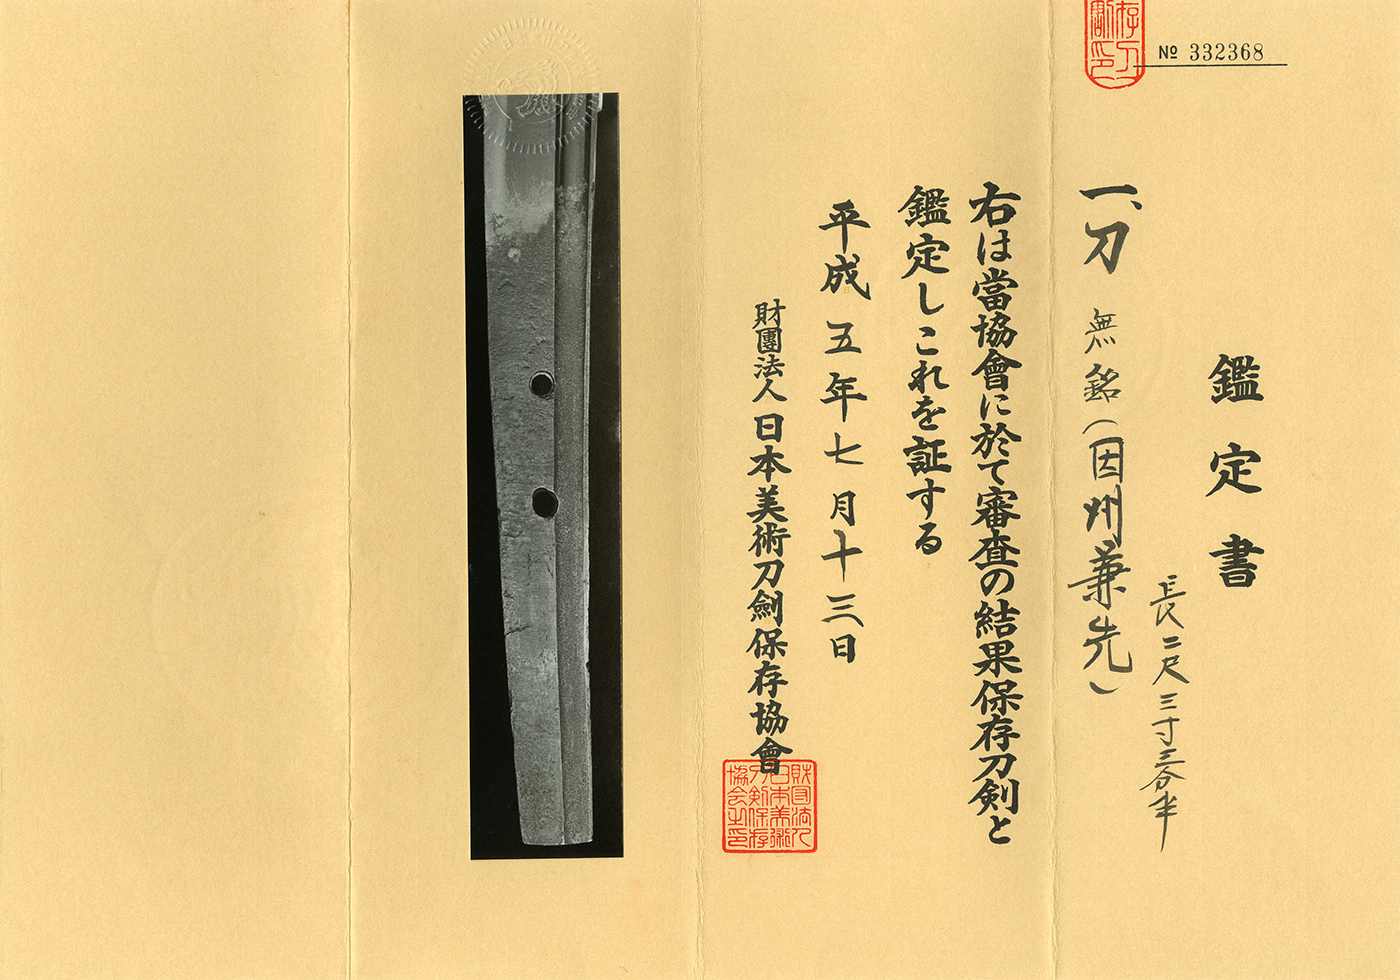 № 332368
鑑定書
一、刀 無銘(因州兼先)
長二尺三寸三分半
右は當協會に於て審査の結果保存刀剣と
鑑定しこれを証する
平成五年七月十三日
財團法人日本美術刀劍保存協會
財団法人
日本美術
刀剣保存
協会之印